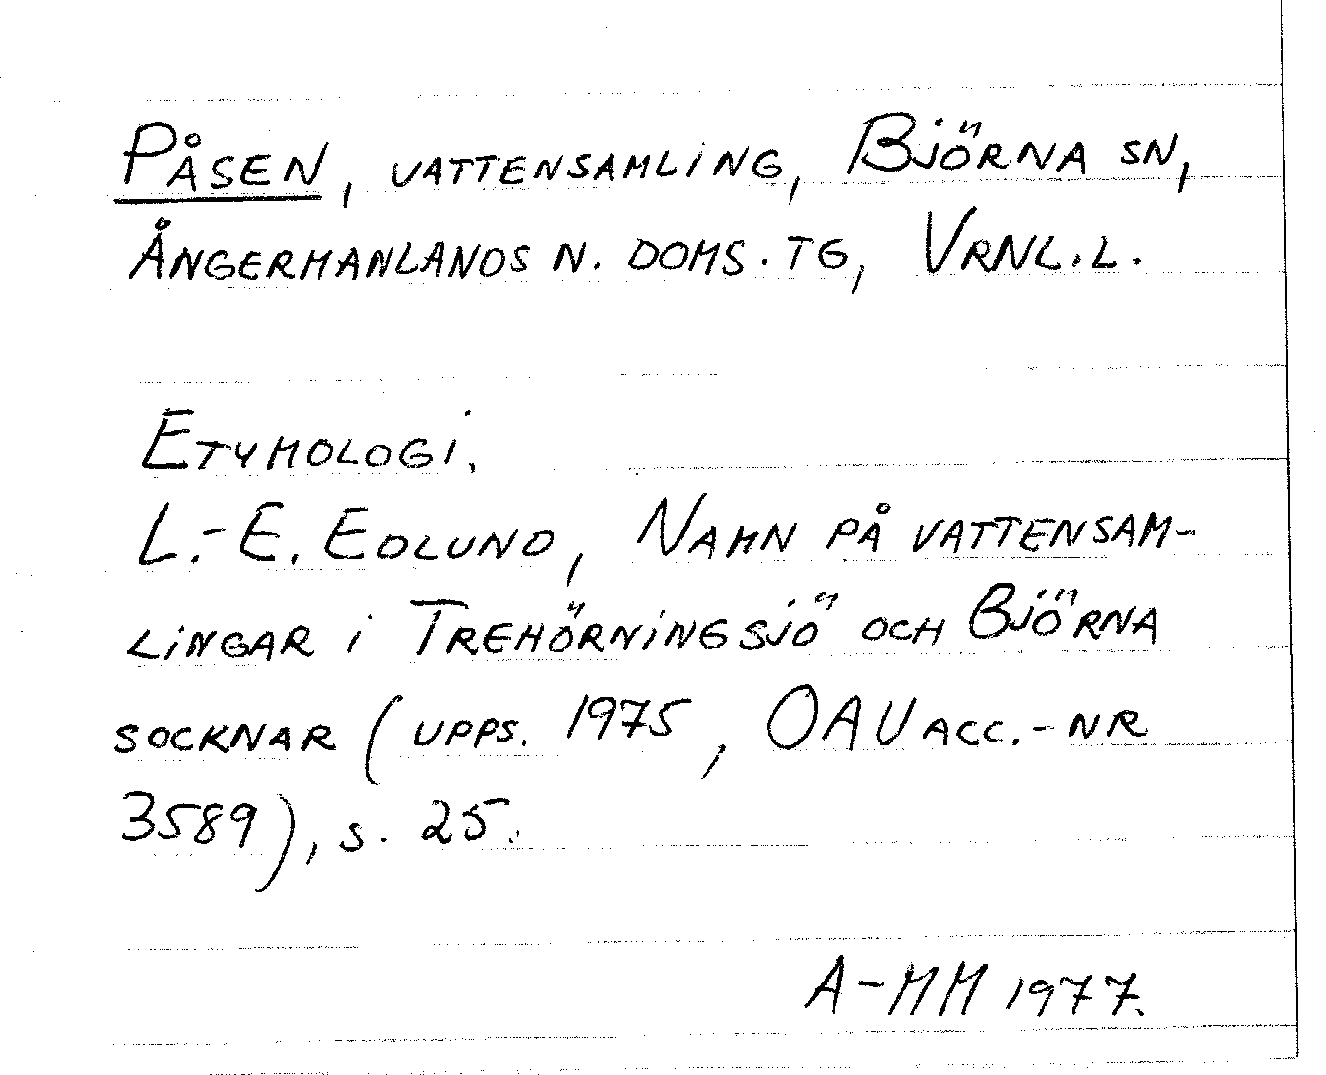 PÅSEN, VATTENSAMLING, BJÖRNA SN,
ÅNGERMANLANDS N. DOMS. TG, VRNL. L.
ETYMOLOGI.
L.-E. EDLUND, NAMN PÅ VATTENSAM-
LINGAR I TREHÖRNINGSJÖ OCH BJÖRNA
SOCKNAR (UPPS. 1975, OAU ACC.-NR
3589), S. 25.
A-MM 1977.